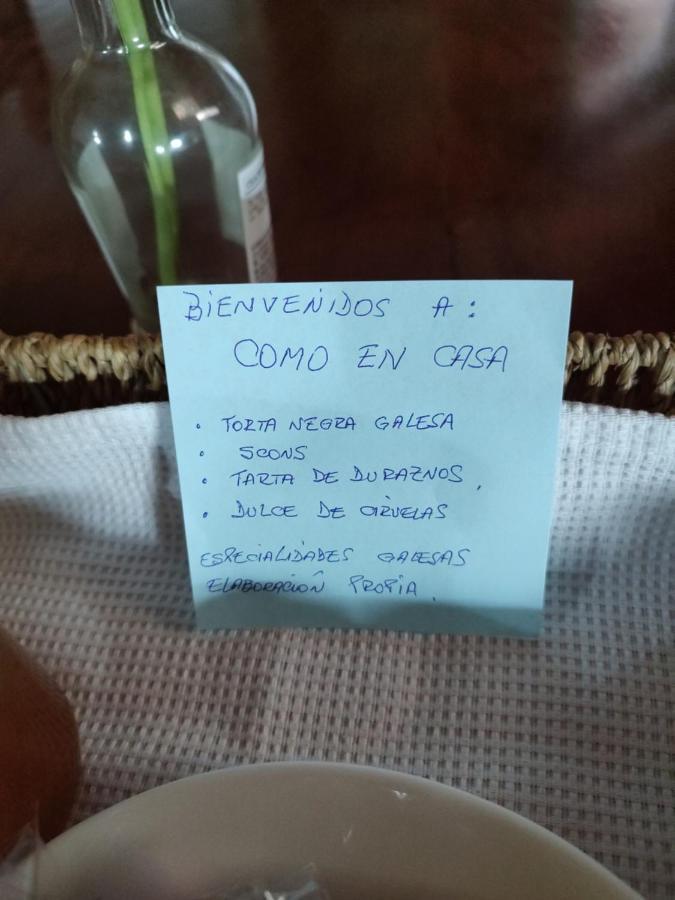 BIENVENIDOS A:
COMO EN CASA
• TORTA NEGRA GALESA
• SCONS
• TARTA DE DURAZNOS.
• DULCE DE CIRUELAS
ESPECIALIDADES GALESAS
ELABORACION PROPIA.